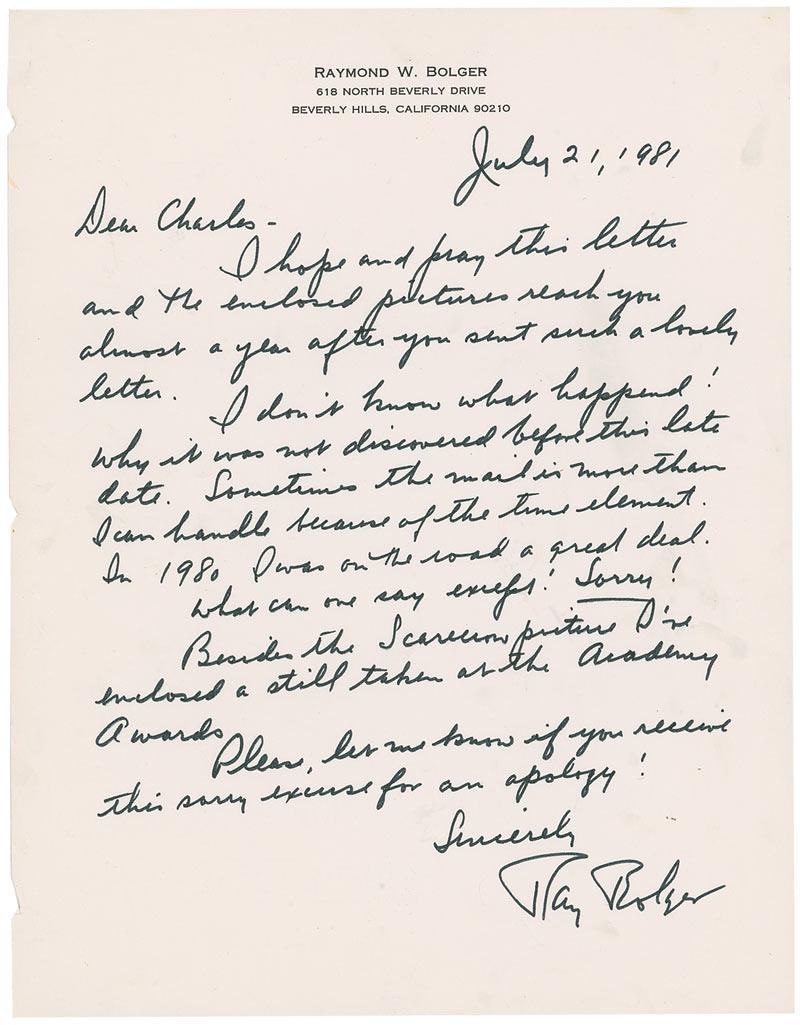 RAYMOND W. BOLGER
618 NORTH BEVERLY DRIVE
BEVERLY HILLS, CALIFORNIA 90210
July 21, 1981
Dear Charles-
I hope and pray this letter
and the enclosed pictures reach you
almost a year after you sent such a lovely
letter.
I don't know what happend!
why it was not discovered before this late
date. Sometimes the mail is more than
I can handle because of the time element.
In 1980 I was on the road a great deal.
What can one say except! Sorry!
Besides the Scarecrow picture I've
enclosed a still taken at the Academy
Awards
Please, let me know if you receive
this sorry excuse for an apology!
Sincerely
Ray Bolger